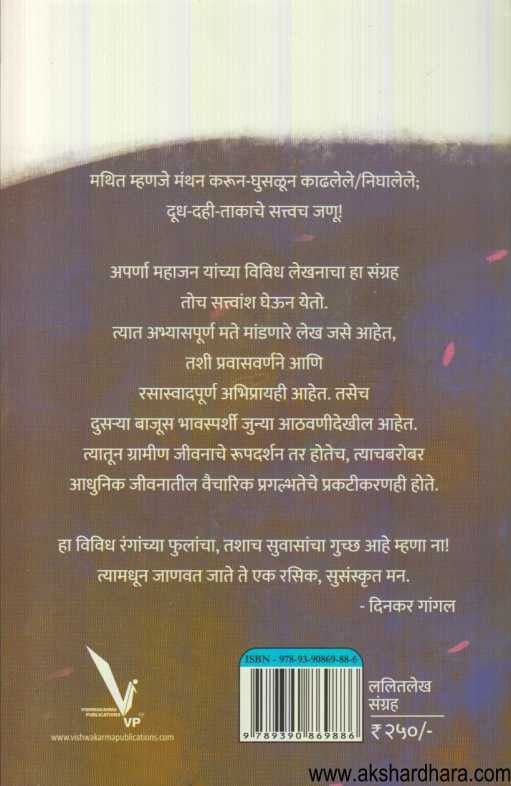 मथित म्हणजे मंथन करून-घुसळून काढलेले/निघालेले;
दूध-दही-ताकाचे सत्त्वच जणू!
अपर्णा महाजन यांच्या विविध लेखनाचा हा संग्रह
तोच सत्त्वांश घेऊन येतो.
त्यात अभ्यासपूर्ण मते मांडणारे लेख जसे आहेत,
तशी प्रवासवर्णने आणि
रसास्वादपूर्ण अभिप्रायही आहेत. तसेच
दुसऱ्या बाजूस भावस्पर्शी जुन्या आठवणीदेखील आहेत.
त्यातून ग्रामीण जीवनाचे रूपदर्शन तर होतेच, त्याचबरोबर
आधुनिक जीवनातील वैचारिक प्रगल्भतेचे प्रकटीकरणही होते.
हा विविध रंगांच्या फुलांचा, तशाच सुवासांचा गुच्छ आहे म्हणा ना!
त्यामधून जाणवत जाते ते एक रसिक, सुसंस्कृत मन.
- दिनकर गांगल
ISBN - 978-93-90869-88-6
9 789390 869886
ललितलेख
संग्रह
₹ २५०/-
VISHWAKARMA
PUBLICATIONS
VP
www.vishwakarmapublications.com
www.akshardhara.com